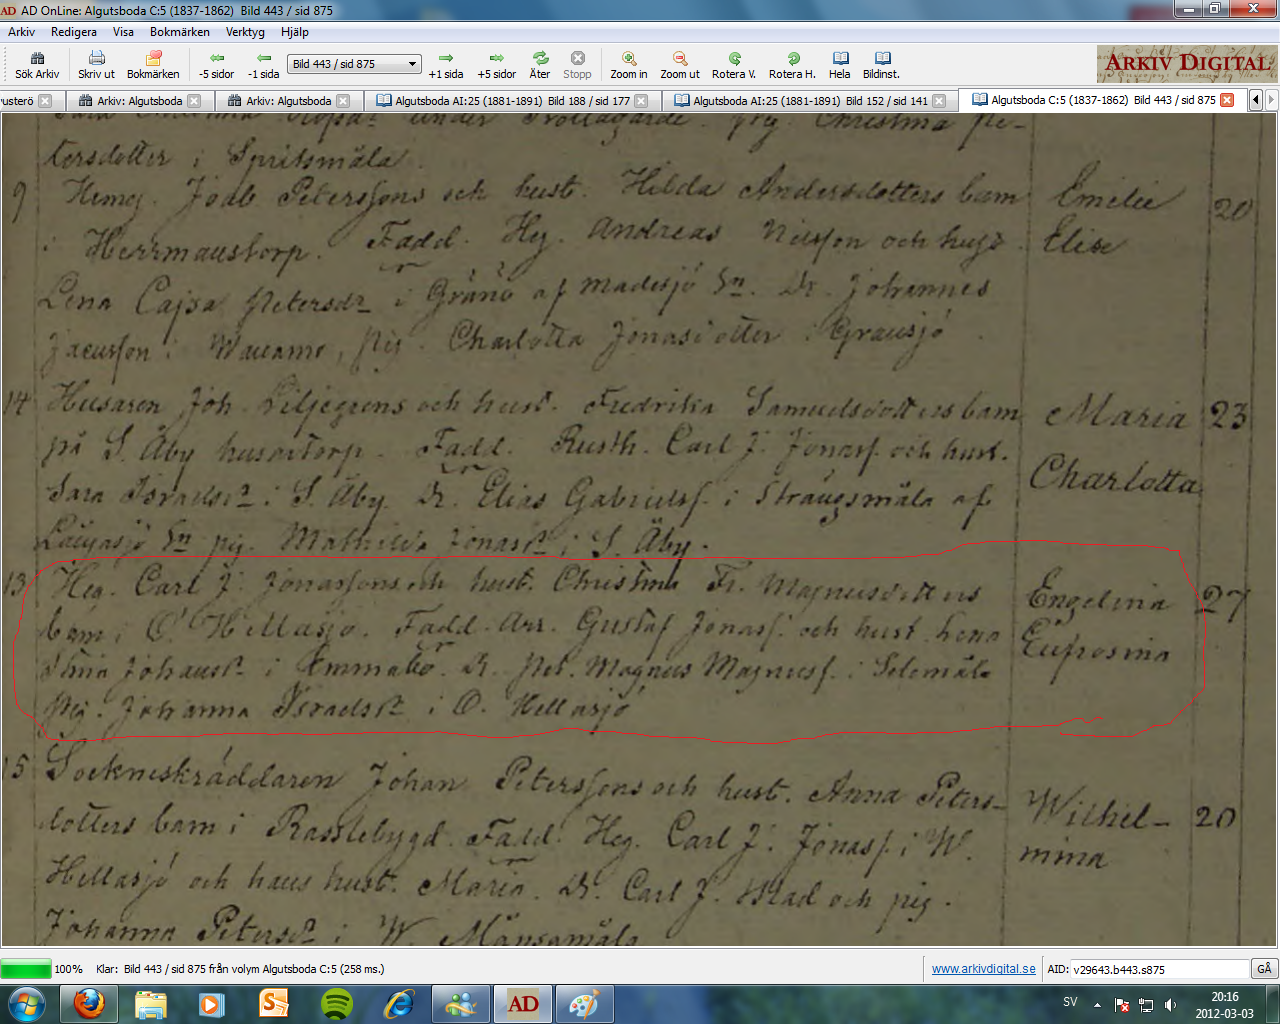 AD OnLine: Algutsboda C:5 (1837-1862) Bild 443 / sid 875
Arkiv Redigera Visa Bokmärken Verktyg Hjälp
Sök Arkiv Skriv ut Bokmärken -5 sidor -1 sida Bild 443 / sid 875 +1 sida +5 sidor Åter Stopp Zoom in Zoom ut Rotera V. Rotera H. Hela Bildinst. ARKIV DIGITAL
usterö Arkiv: Algutsboda Arkiv: Algutsboda Algutsboda AI:25 (1881-1891) Bild 188 / sid 177 Algutsboda AI:25 (1881-1891) Bild 152 / sid 141 Algutsboda C:5 (1837-1862) Bild 443 / sid 875
under pig Christina Pe-
tersdotter i Spritsmåla.
9 Hemg. Petersssons och hust. Hilda Andersdotters barn Emilie 20
i Herrmanstorp. Fadd. Heg. Andreas Nilsson och hust. Elise
Lena Cajsa Petersdr i Gränö af Madesjö Sn. Dr. Johannes
i pig. Charlotta Jonasdotter i Gransjö.
14 Husaren Joh. Liljegrens och hust. Fredrika Samuelsdotters barn Maria 23
på S. Åby husartorp. Fadd. Rusth. Carl J. Jonass. och hust.
Charlotta
Sara Israelsdr i S. Åby. Dr. Elias Gabrielss. i Strängsmåla af
Sn pig. Mathilda Jonasdr i S. Åby.
13 Heg. Carl J. Jonassons och hust. Christina Fr. Magnusdotters Engelina 27
barn i Ö. Hellasjö. Fadd. Arr. Gustaf Jonass. och hust. Lena Eufrosina
Stina Johansdr i Emmabo. Dr. Pet. Magnus Magnuss. i Selemåla
Pig. Johanna Israelsdr i Ö. Hellasjö
15 Sockneskräddaren Johan Peterssons och hust. Anna Peters- Wilhel- 20
dotters barn i Rasslebygd. Fadd. Heg. Carl J. Jonass. i W. mina
Hellasjö och hans hust. Maria. Dr. Carl J. Blad och pig.
Johanna Petersdr i W. Månsamåla
100% Klar: Bild 443 / sid 875 från volym Algutsboda C:5 (258 ms.) www.arkivdigital.se AID: v29643.b443.s875 GÅ
AD SV 20:16
2012-03-03